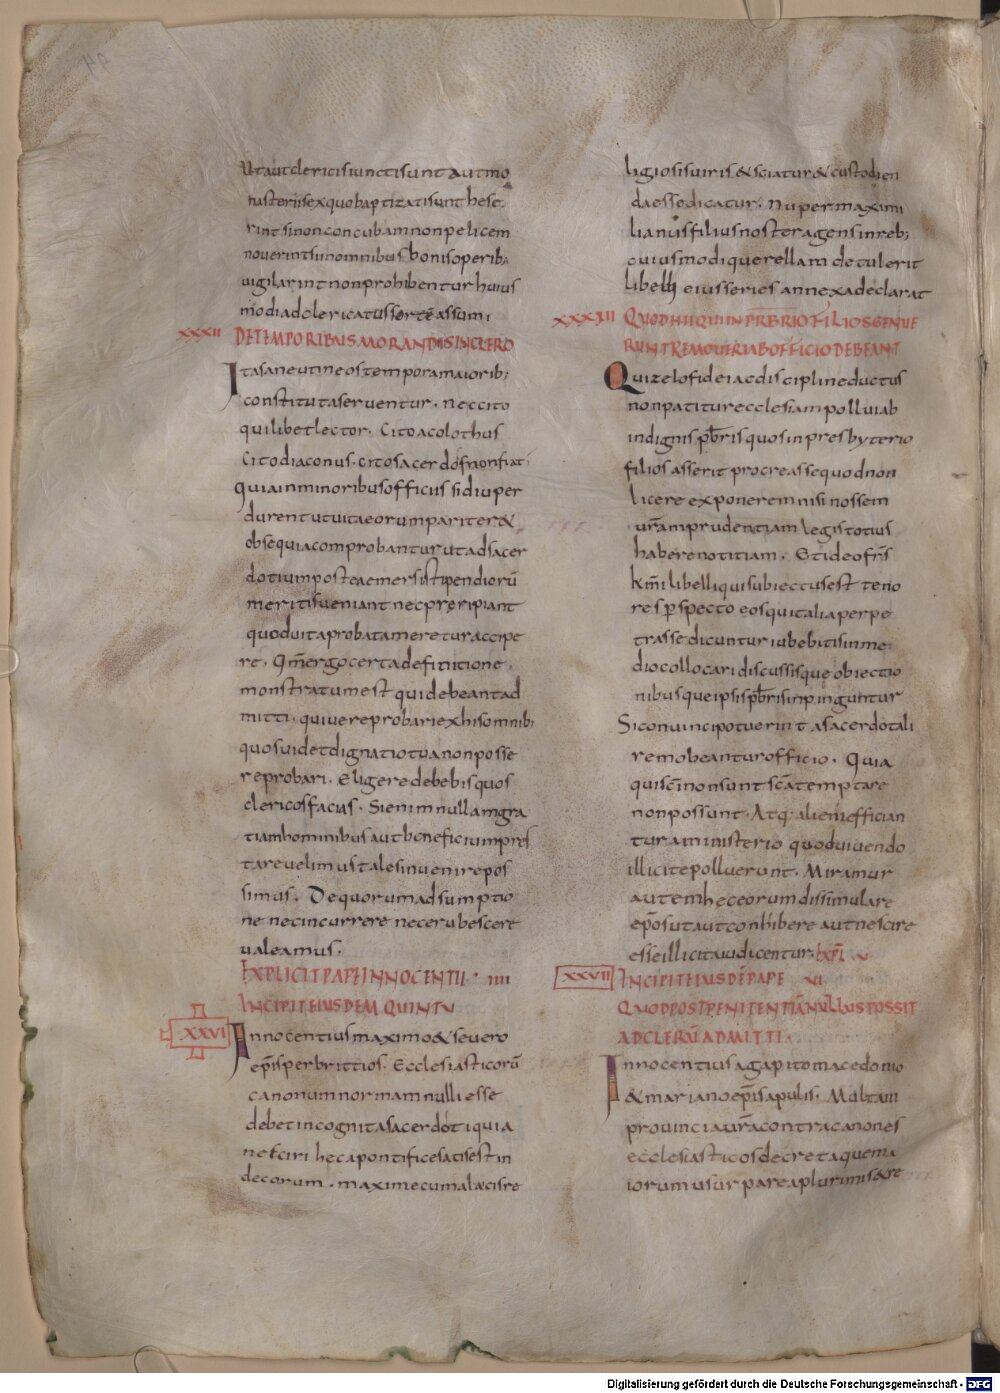 Ut aut clericis iuncti sunt aut mo
nasteriis ex quo baptizati sunt hese
rint si non concubam non pelicem
nouerint si in omnibus bonis operib;
uigilarint non prohibentur huius
modi ad clericatus sortē assumi
XXXII DE TEMPORIBUS MORANDIS IN CLERO
Ita sane ut in eos tempora maiorib;
constituta seruentur. nec cito
quilibet lector. Cito acolothus
Cito diaconus. cito sacerdos non fiat;
quia in minoribus officiis si diu per
durent ut uita eorum pariter &
obsequia comprobantur ut ad sacer
dotium postea emersi stipendiorū
meritis ueniant nec preripiant
quod uita probata meretur accipe
re. Qm̄ ergo certa definitione.
monstratum est qui debeant ad
mitti. qui uere probari ex his omnib;
quos uidet dignatio tua non posse
reprobari. Eligere debebis quos
clericos facias. Si enim nullam gra
tiam hominibus aut beneficium pres
tare uelimus tales inuenire pos
simus. De quorum adsumptio
ne nec incurrere nec erubescere
ualeamus.
EXPLICIT PAPE INNOCENTII. IIII
INCIPIT EIUSDEM QUINTU
XXVI Innocentius maximo & seuero
ep̄is per brittios. Ecclesiasticorū
canonum normam nulli esse
debet incognita sacerdoti quia
nesciri hec a pontifice satis est in
decorum. maxime cum a laicis re
ligiosis uiris & sciatur & custodien
da esse dicatur. Nuper maximi
lianus filius noster agens in reb;
cuiusmodi querellam detulerit
libelli eius series annexa declarat
XXXIII QUOD HII QUI IN PRB̄RIO FILIOS GENUE
RUNT REMOUERI AB OFFICIO DEBEANT
Qui zelo fidei ac discipline ductus
non patitur ecclesiam pollui ab
indignis pb̄ris quos in presbyterio
filios asserit procreasse quod non
licere exponerem nisi nossem
ur̄am prudentiam legis totius
habere notitiam. Et ideo fr̄s
km̄i libelli qui subiectus est teno
re p̱specto eos qui talia perpe
trasse dicuntur iubebitis in me
dio collocari discussisque obiectio
nibus que ipsis pb̄ris inpinguntur
Si conuinci potuerint a sacerdotali
remobeantur officio. Quia
qui sc̄i non sunt sc̄a temptare
non possunt. Atq; alieni effician
tur a ministerio quod uiuendo
illicite polluerunt. Miramur
autem hec eorum dissimulare
ep̄os ut aut conhibere aut nescire
esse illicita iudicentur. EXPL V
XXVII INCIPIT EIUSDĒ PAPE VI
QUOD POST PENITENTIĀ NULLUS POSSIT
AD CLERŪ ADMITTI.
Innocentius agapito macedonio
& mariano ep̄is apulis. Multa in
prouincia ur̄a contra canones
ecclesiasticos decreta que ma
iorum usurpare a plurimis & re
Digitalisierung gefördert durch die Deutsche Forschungsgemeinschaft - DFG